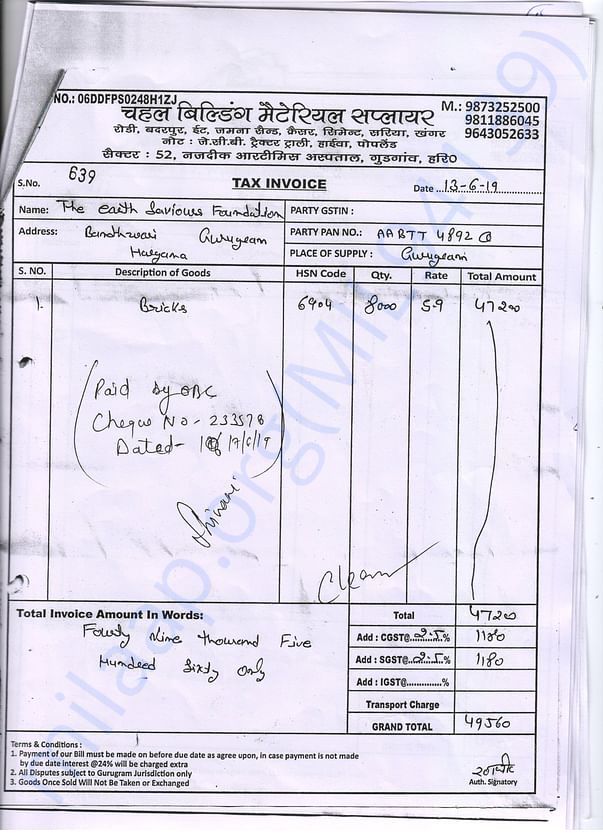 NO.: 06DDFPS0248H1ZJ
चहल बिल्डिंग मैटेरियल सप्लायर
M.: 9873252500
9811886045
9643052633
रोडी, बदरपुर, ईट, जमना सैन्ड, कैसर, सिमेन्ट, सरिया, खंगर
नोट : जे.सी.बी. ट्रैक्टर ट्राली, हाईवा, पोपलैंड
सैक्टर : 52, नजदीक आरटीमिस अस्पताल, गुडगांव, हरि0
S.No. 639
TAX INVOICE
Date ..13-6-19
Name: The earth Saviours Foundation
PARTY GSTIN :
Address: Bandhwari Gurugram
Haryana
PARTY PAN NO.: AABTT 4892 B
PLACE OF SUPPLY : Gurugram
S. NO. Description of Goods HSN Code Qty. Rate Total Amount
1. Bricks 6904 8000 5.9 47200
(Paid by OBC
Cheque No - 233578
Dated- 17/6/19)
Total Invoice Amount In Words:
Fourty Nine thousand Five
Hundred Sixty Only
Total 47200
Add : CGST@..2.5..% 1180
Add : SGST@..2.5..% 1180
Add : IGST@.............%
Transport Charge
GRAND TOTAL 49560
Terms & Conditions :
1. Payment of our Bill must be made on before due date as agree upon, in case payment is not made
by due date interest @24% will be charged extra
2. All Disputes subject to Gurugram Jurisdiction only
3. Goods Once Sold Will Not Be Taken or Exchanged
Auth. Signatory